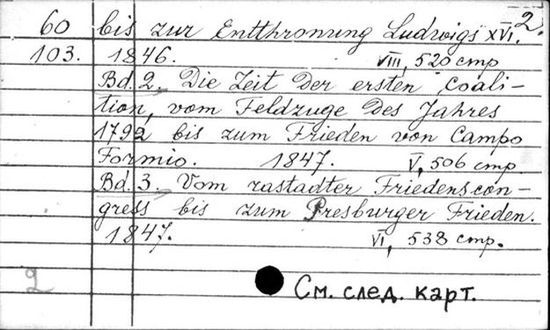 60 bis zur Entthronung Ludwigs XVI. 2.
103. 1846. VIII, 520 стр
Bd. 2. Die Zeit der ersten Coali-
tion, vom Feldzuge des Jahres
1792 bis zum Frieden von Campo
Formio. 1847. V, 506 стр.
Bd. 3. Vom rastadter Friedenscon-
gress bis zum Presburger Frieden.
1847. VI, 538 стр.
2
См. след. карт.